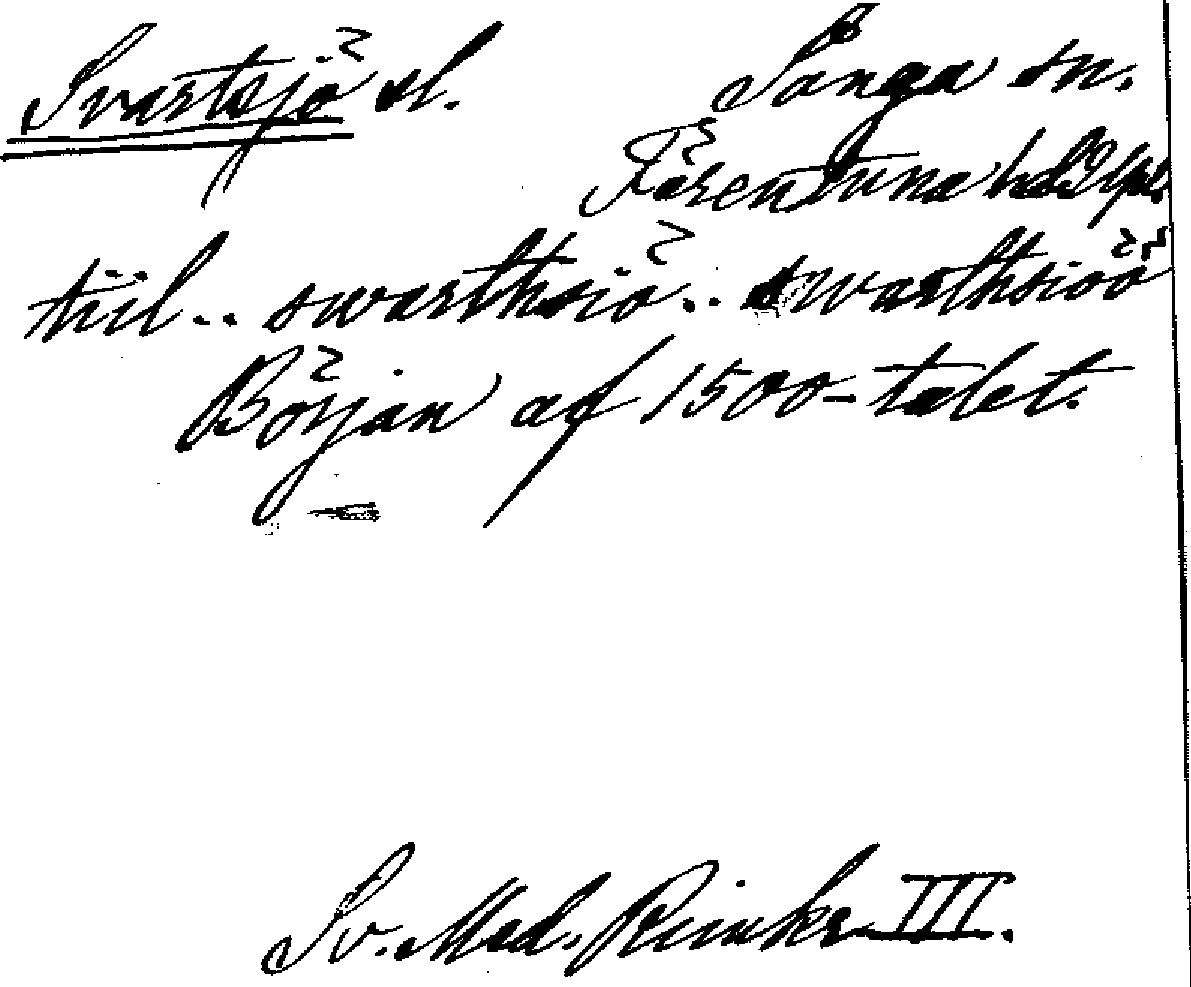 Svartsjö sl. Sånga sn.
Färentuna hd Upl.
tiil.. swarthsiö.. swarthsiöö
Början af 1500-talet.
Sv. Med. Rimkr. III.